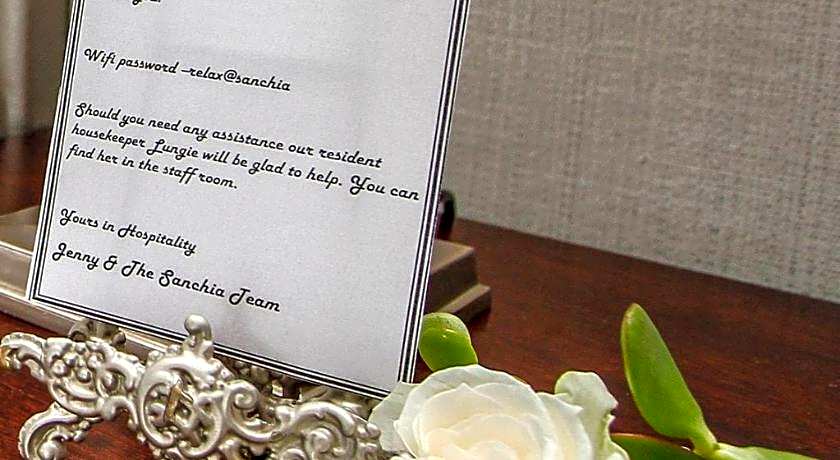 Wifi password -relax@sanchia
Should you need any assistance our resident
housekeeper Lungie will be glad to help. You can
find her in the staff room.
Yours in Hospitality
Jenny & The Sanchia Team